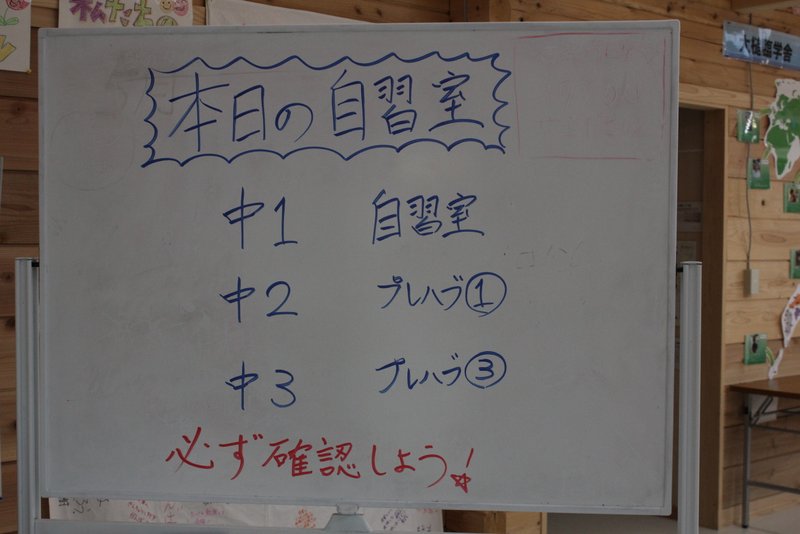 本日の自習室
中1 自習室
中2 プレハブ①
中3 プレハブ③
必ず確認しよう!
私たちの
大槌臨学舎